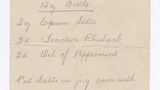 12oz Bottle
2oz Epsom Salts
2d Tincture Rhubarb
2d Oil of Peppermint
Put Salts in jug cover with